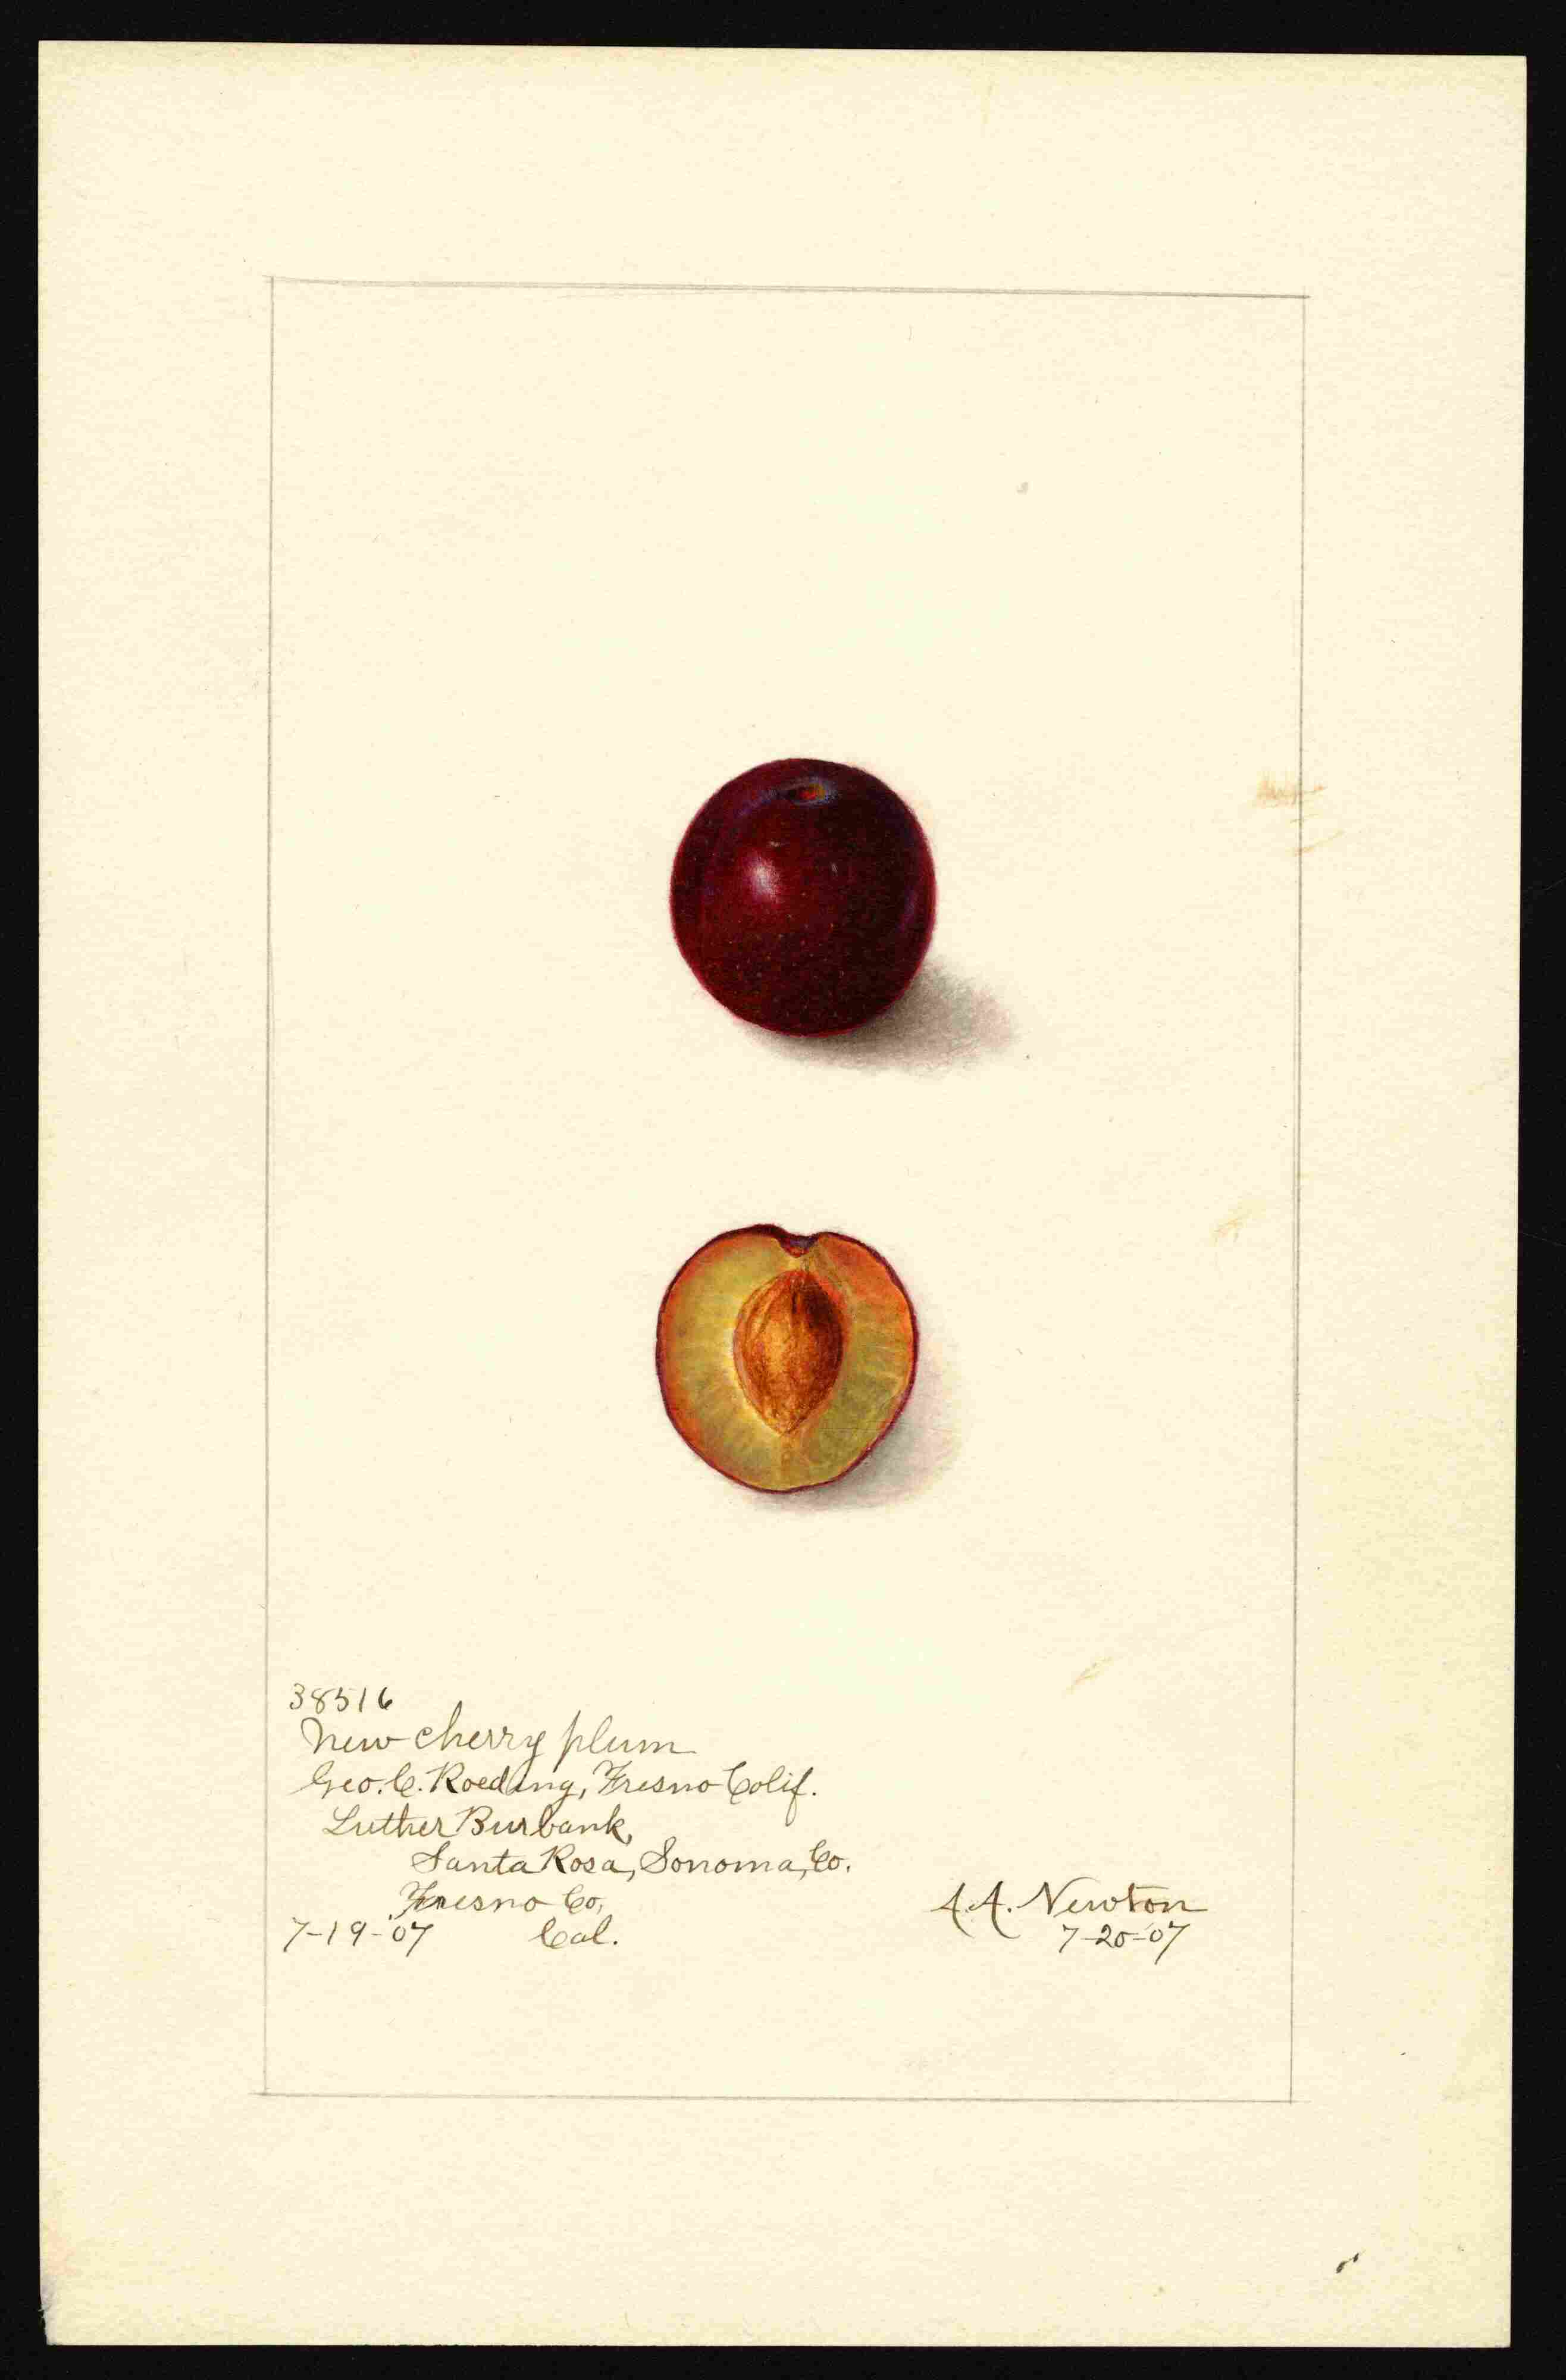 38516
New cherry plum
Geo. C. Roeding, Fresno Calif.
Luther Burbank,
Santa Rosa, Sonoma, Co.
Fresno Co,
7-19-'07 Cal.
A.A. Newton
7-20-'07